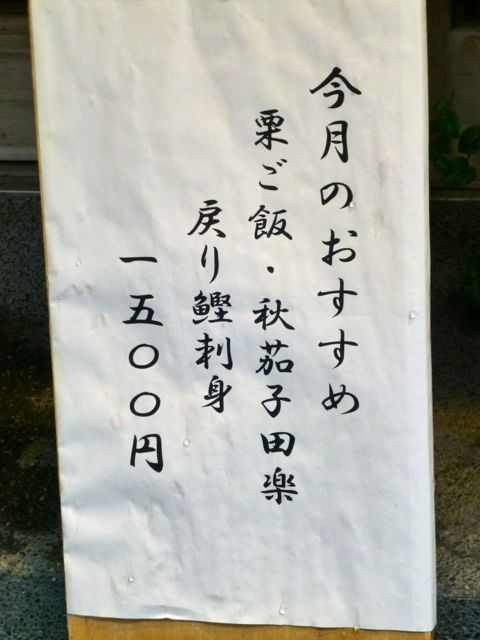 今月のおすすめ
栗ご飯・秋茄子田楽
戻り鰹刺身
一五〇〇円